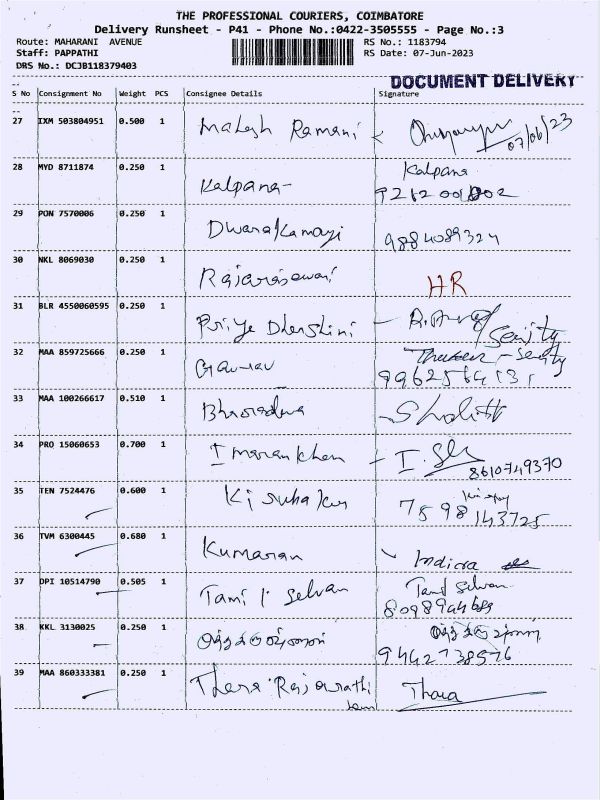 THE PROFESSIONAL COURIERS, COIMBATORE
Delivery Runsheet - P41 - Phone No.:0422-3505555 - Page No.:3
Route: MAHARANI AVENUE RS No.: 1183794
Staff: PAPPATHI RS Date: 07-Jun-2023
DRS No.: DCJB118379403
DOCUMENT DELIVERY
S No Consignment No Weight PCS Consignee Details Signature
27 IXM 503804951 0.500 1 Mahesh Ramani 07/06/23
28 MYD 8711874 0.250 1 Kalpana Kalpana
29 PON 7570006 0.250 1 Dwarakamayi 9884089324
30 NKL 8069030 0.250 1 Rajaraseswari HR
31 BLR 4550060595 0.250 1 Priya Dharshini
32 MAA 859725666 0.250 1 Gaurav
33 MAA 100266617 0.510 1
34 PRO 15060653 0.700 1 Imran khan 8610749370
35 TEN 7524476 0.600 1 7598143725
36 TVM 6300445 0.680 1 Kumaran Indira
37 DPI 10514790 0.505 1 Tamil Selvan Tamil Selvan
38 KKL 3130025 0.250 1 9442738576
39 MAA 860333381 0.250 1 Thara Thara